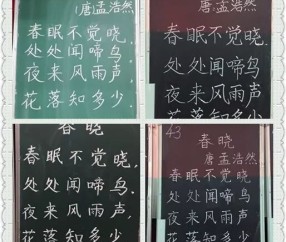 (唐孟浩然
春眠不觉晓
处处闻啼鸟
夜来风雨声
花落知多少
唐孟浩然
春眠不觉晓.
处处闻啼鸟
夜来风雨声
花落知多少.
春晓
春眠不觉晓,
处处闻啼鸟.
夜来风雨声,
花落知多少
43
春晓
唐孟浩然
春眠不觉晓
处处闻啼鸟
夜来风雨声
花落知多少